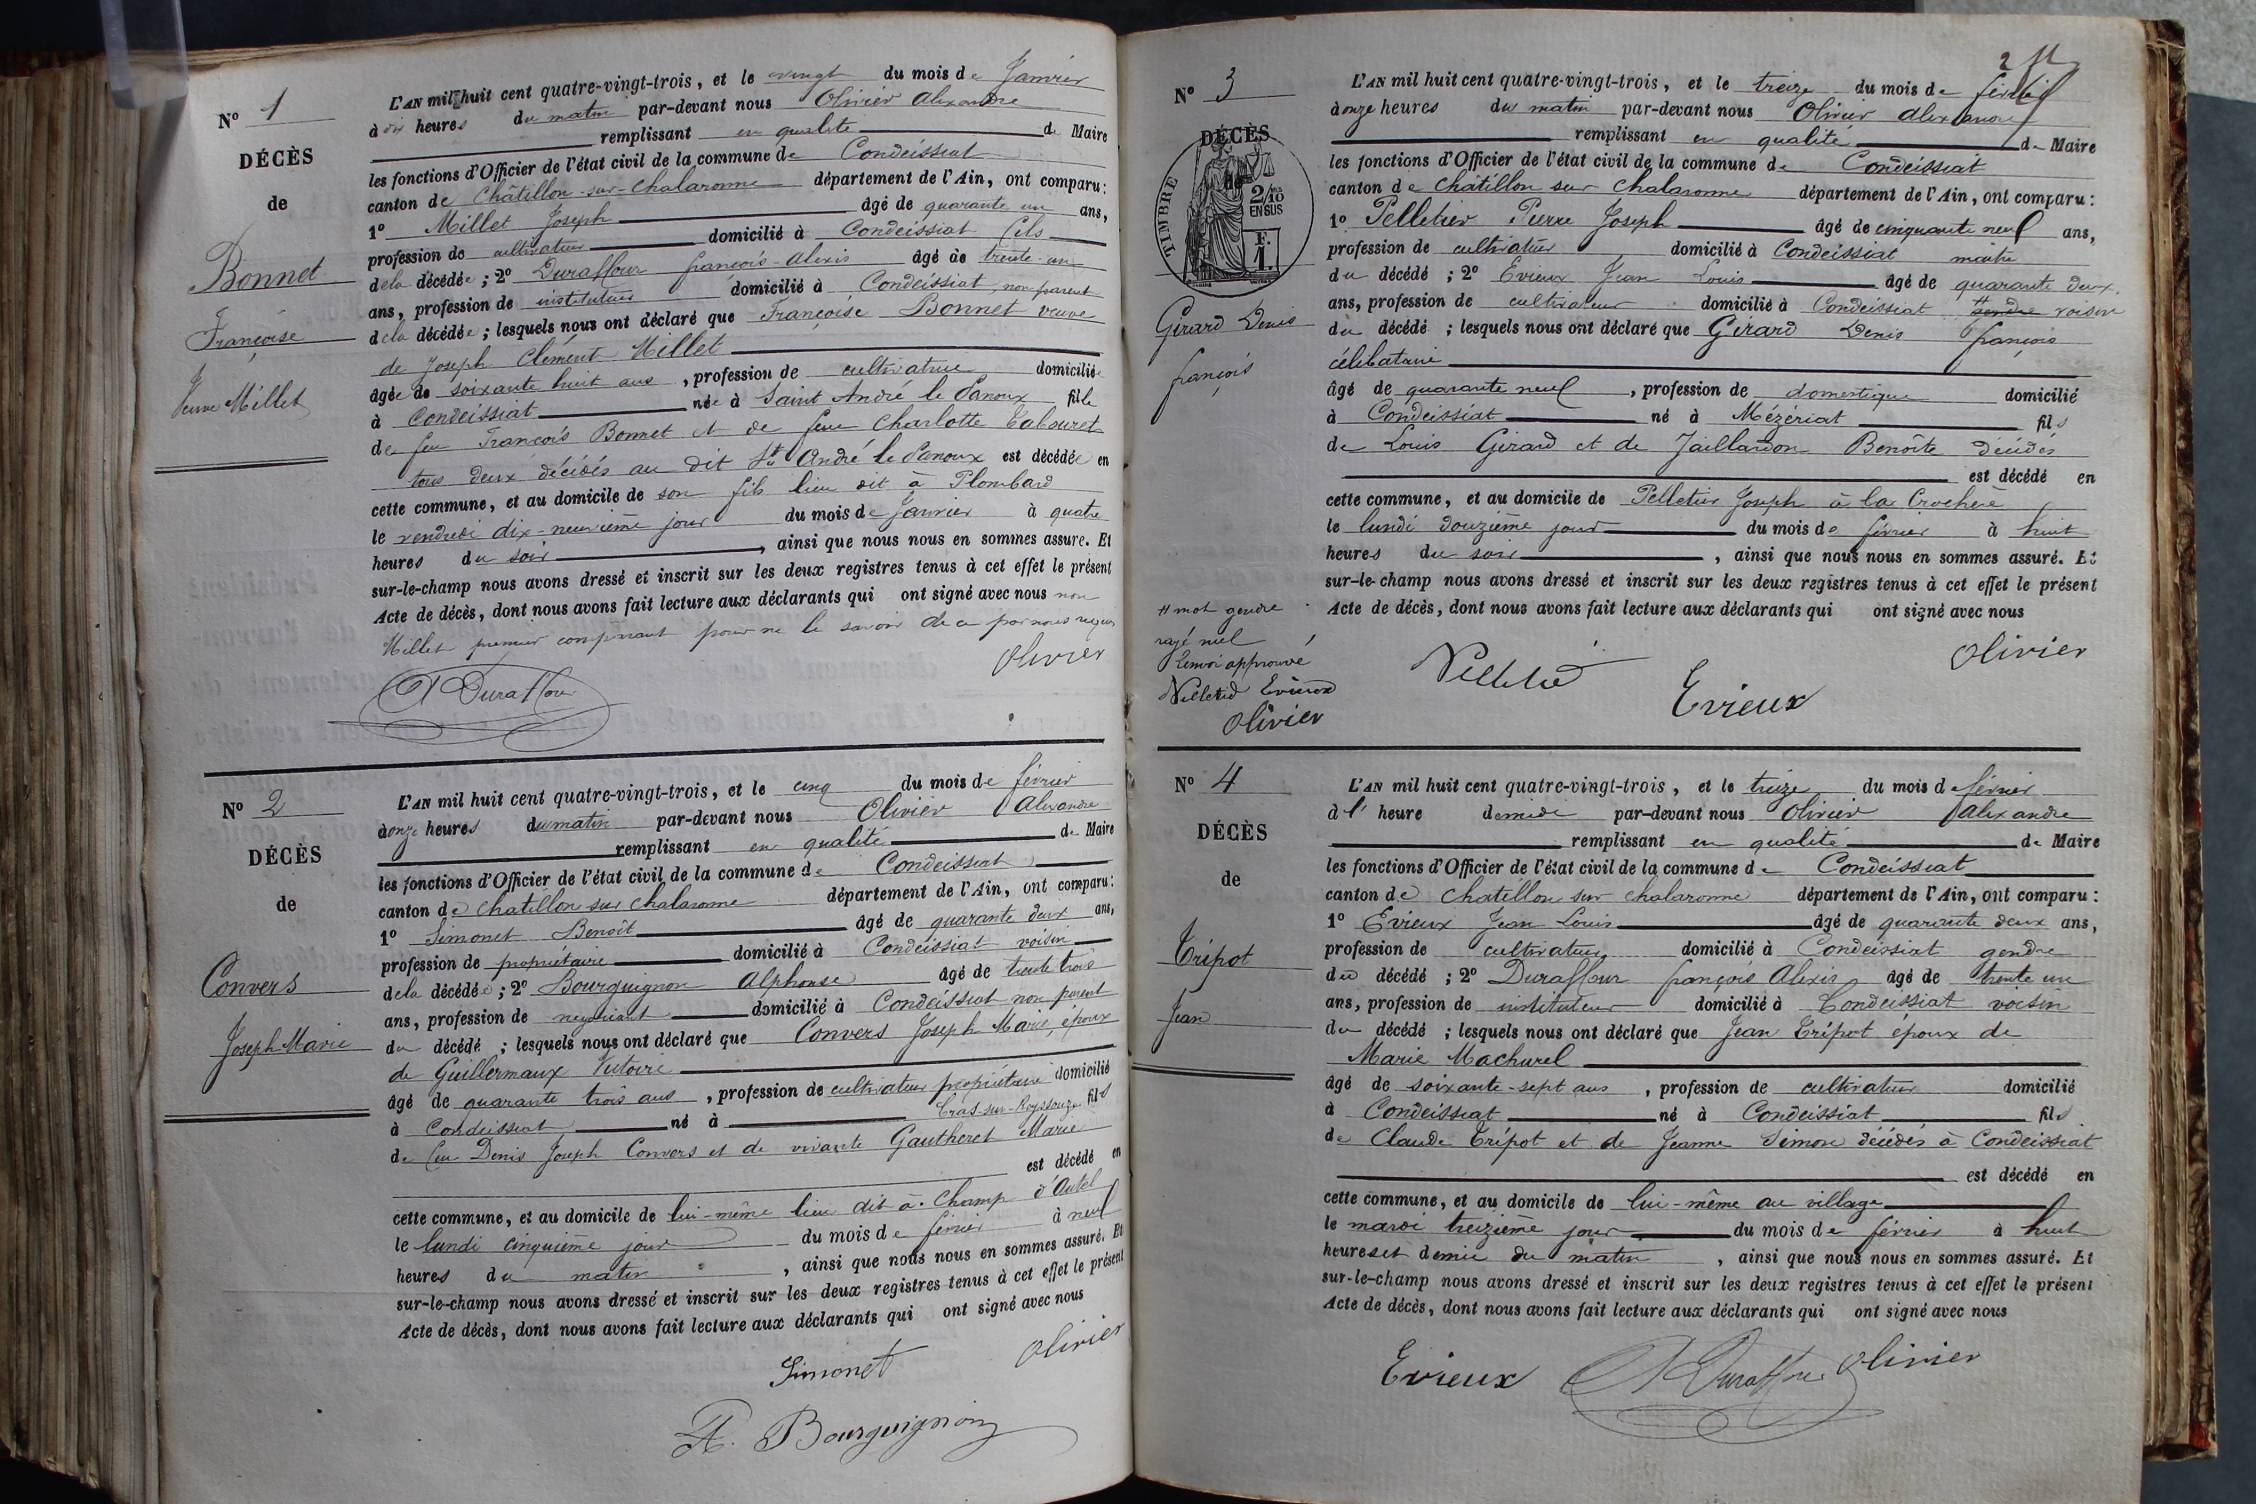 N° 1
DÉCÈS
de
Bonnet
Françoise
Veuve Millet
L'AN mil huit cent quatre-vingt-trois, et le vingt du mois de Janvier
à dix heures du matin par-devant nous Olivier Alexandre
remplissant en qualité de Maire
les fonctions d'Officier de l'état civil de la commune de Condeissiat
canton de Châtillon-sur-Chalaronne département de l'Ain, ont comparu:
1° Millet Joseph âgé de quarante un ans,
profession de cultivateur domicilié à Condeissiat fils
de la décédée; 2° Duraffour françois-Alexis âgé de trente-un
ans, profession de instituteur domicilié à Condeissiat, non parent
de la décédée; lesquels nous ont déclaré que Françoise Bonnet veuve
de Joseph Clément Millet
âgée de soixante huit ans, profession de cultivatrice domiciliée
à Condeissiat née à Saint André le Panoux fille
de feu François Bonnet et de feue Charlotte Tabouret
tous deux décédés au dit St André le Panoux est décédée en
cette commune, et au domicile de son fils lieu dit à Plombard
le vendredi dix-neuvième jour du mois de Janvier à quatre
heures du soir, ainsi que nous nous en sommes assuré. Et
sur-le-champ nous avons dressé et inscrit sur les deux registres tenus à cet effet le présent
Acte de décès, dont nous avons fait lecture aux déclarants qui ont signé avec nous non
Millet premier comparant pour ne le savoir de ce par nous requis
Olivier
Duraffour
N° 2
DÉCÈS
de
Convers
Joseph Marie
L'AN mil huit cent quatre-vingt-trois, et le cinq du mois de février
à onze heures du matin par-devant nous Olivier Alexandre
remplissant en qualité de Maire
les fonctions d'Officier de l'état civil de la commune de Condeissiat
canton de Chatillon sur Chalaronne département de l'Ain, ont comparu:
1° Simonet Benoît âgé de quarante deux ans,
profession de propriétaire domicilié à Condeissiat voisin
de la décédée; 2° Bourguignon Alphonse âgé de trente trois
ans, profession de negociant domicilié à Condeissiat non parent
du décédé; lesquels nous ont déclaré que Convers Joseph Marie, époux
de Guillermaux Victoire
âgé de quarante trois ans, profession de cultivateur propriétaire domicilié
à Condeissiat né à Cras-sur-Reyssouze fils
de feu Denis Joseph Convers et de vivante Gautheret Marie
est décédé en
cette commune, et au domicile de lui-même lieu dit à Champ d'Autel
le lundi cinquième jour du mois de février à neuf
heures du matin, ainsi que nous nous en sommes assuré. Et
sur-le-champ nous avons dressé et inscrit sur les deux registres tenus à cet effet le présent
Acte de décès, dont nous avons fait lecture aux déclarants qui ont signé avec nous
Simonet Olivier
A. Bourguignon
2
N° 3
DÉCÈS
de
TIMBRE
2/10
EN SUS
F.
1.
Girard Denis
françois
L'AN mil huit cent quatre-vingt-trois, et le treize du mois de février
à onze heures du matin par-devant nous Olivier Alexandre
remplissant en qualité de Maire
les fonctions d'Officier de l'état civil de la commune de Condeissiat
canton de Châtillon sur Chalaronne département de l'Ain, ont comparu:
1° Pelletier Pierre Joseph âgé de cinquante neuf ans,
profession de cultivateur domicilié à Condeissiat maître
du décédé; 2° Evieux Jean Louis âgé de quarante deux
ans, profession de cultivateur domicilié à Condeissiat # gendre voisin
du décédé; lesquels nous ont déclaré que Girard Denis françois
célibataire
âgé de quarante neuf, profession de domestique domicilié
à Condeissiat né à Mézériat fils
de Louis Girard et de Jaillardon Benoîte décédés
est décédé en
cette commune, et au domicile de Pelletier Joseph à la Crochère
le lundi douzième jour du mois de février à huit
heures du soir, ainsi que nous nous en sommes assuré. Et
sur-le-champ nous avons dressé et inscrit sur les deux registres tenus à cet effet le présent
Acte de décès, dont nous avons fait lecture aux déclarants qui ont signé avec nous
# mot gendre
rayé nul
Renvoi approuvé
Evieux
Olivier
Olivier
Evieux
N° 4
DÉCÈS
de
Tripot
Jean
L'AN mil huit cent quatre-vingt-trois, et le treize du mois de février
à l'heure de midi par-devant nous Olivier Alexandre
remplissant en qualité de Maire
les fonctions d'Officier de l'état civil de la commune de Condeissiat
canton de Chatillon sur Chalaronne département de l'Ain, ont comparu:
1° Evieux Jean Louis âgé de quarante deux ans,
profession de cultivateur domicilié à Condeissiat gendre
du décédé; 2° Duraffour françois Alexis âgé de trente un
ans, profession de instituteur domicilié à Condeissiat voisin
du décédé; lesquels nous ont déclaré que Jean Tripot époux de
Marie Machurel
âgé de soixante-sept ans, profession de cultivateur domicilié
à Condeissiat né à Condeissiat fils
de Claude Tripot et de Jeanne Simon décédés à Condeissiat
est décédé en
cette commune, et au domicile de lui-même au village
le mardi treizième jour du mois de février à huit
heures et demie du matin, ainsi que nous nous en sommes assuré. Et
sur-le-champ nous avons dressé et inscrit sur les deux registres tenus à cet effet le présent
Acte de décès, dont nous avons fait lecture aux déclarants qui ont signé avec nous
Evieux Duraffour Olivier